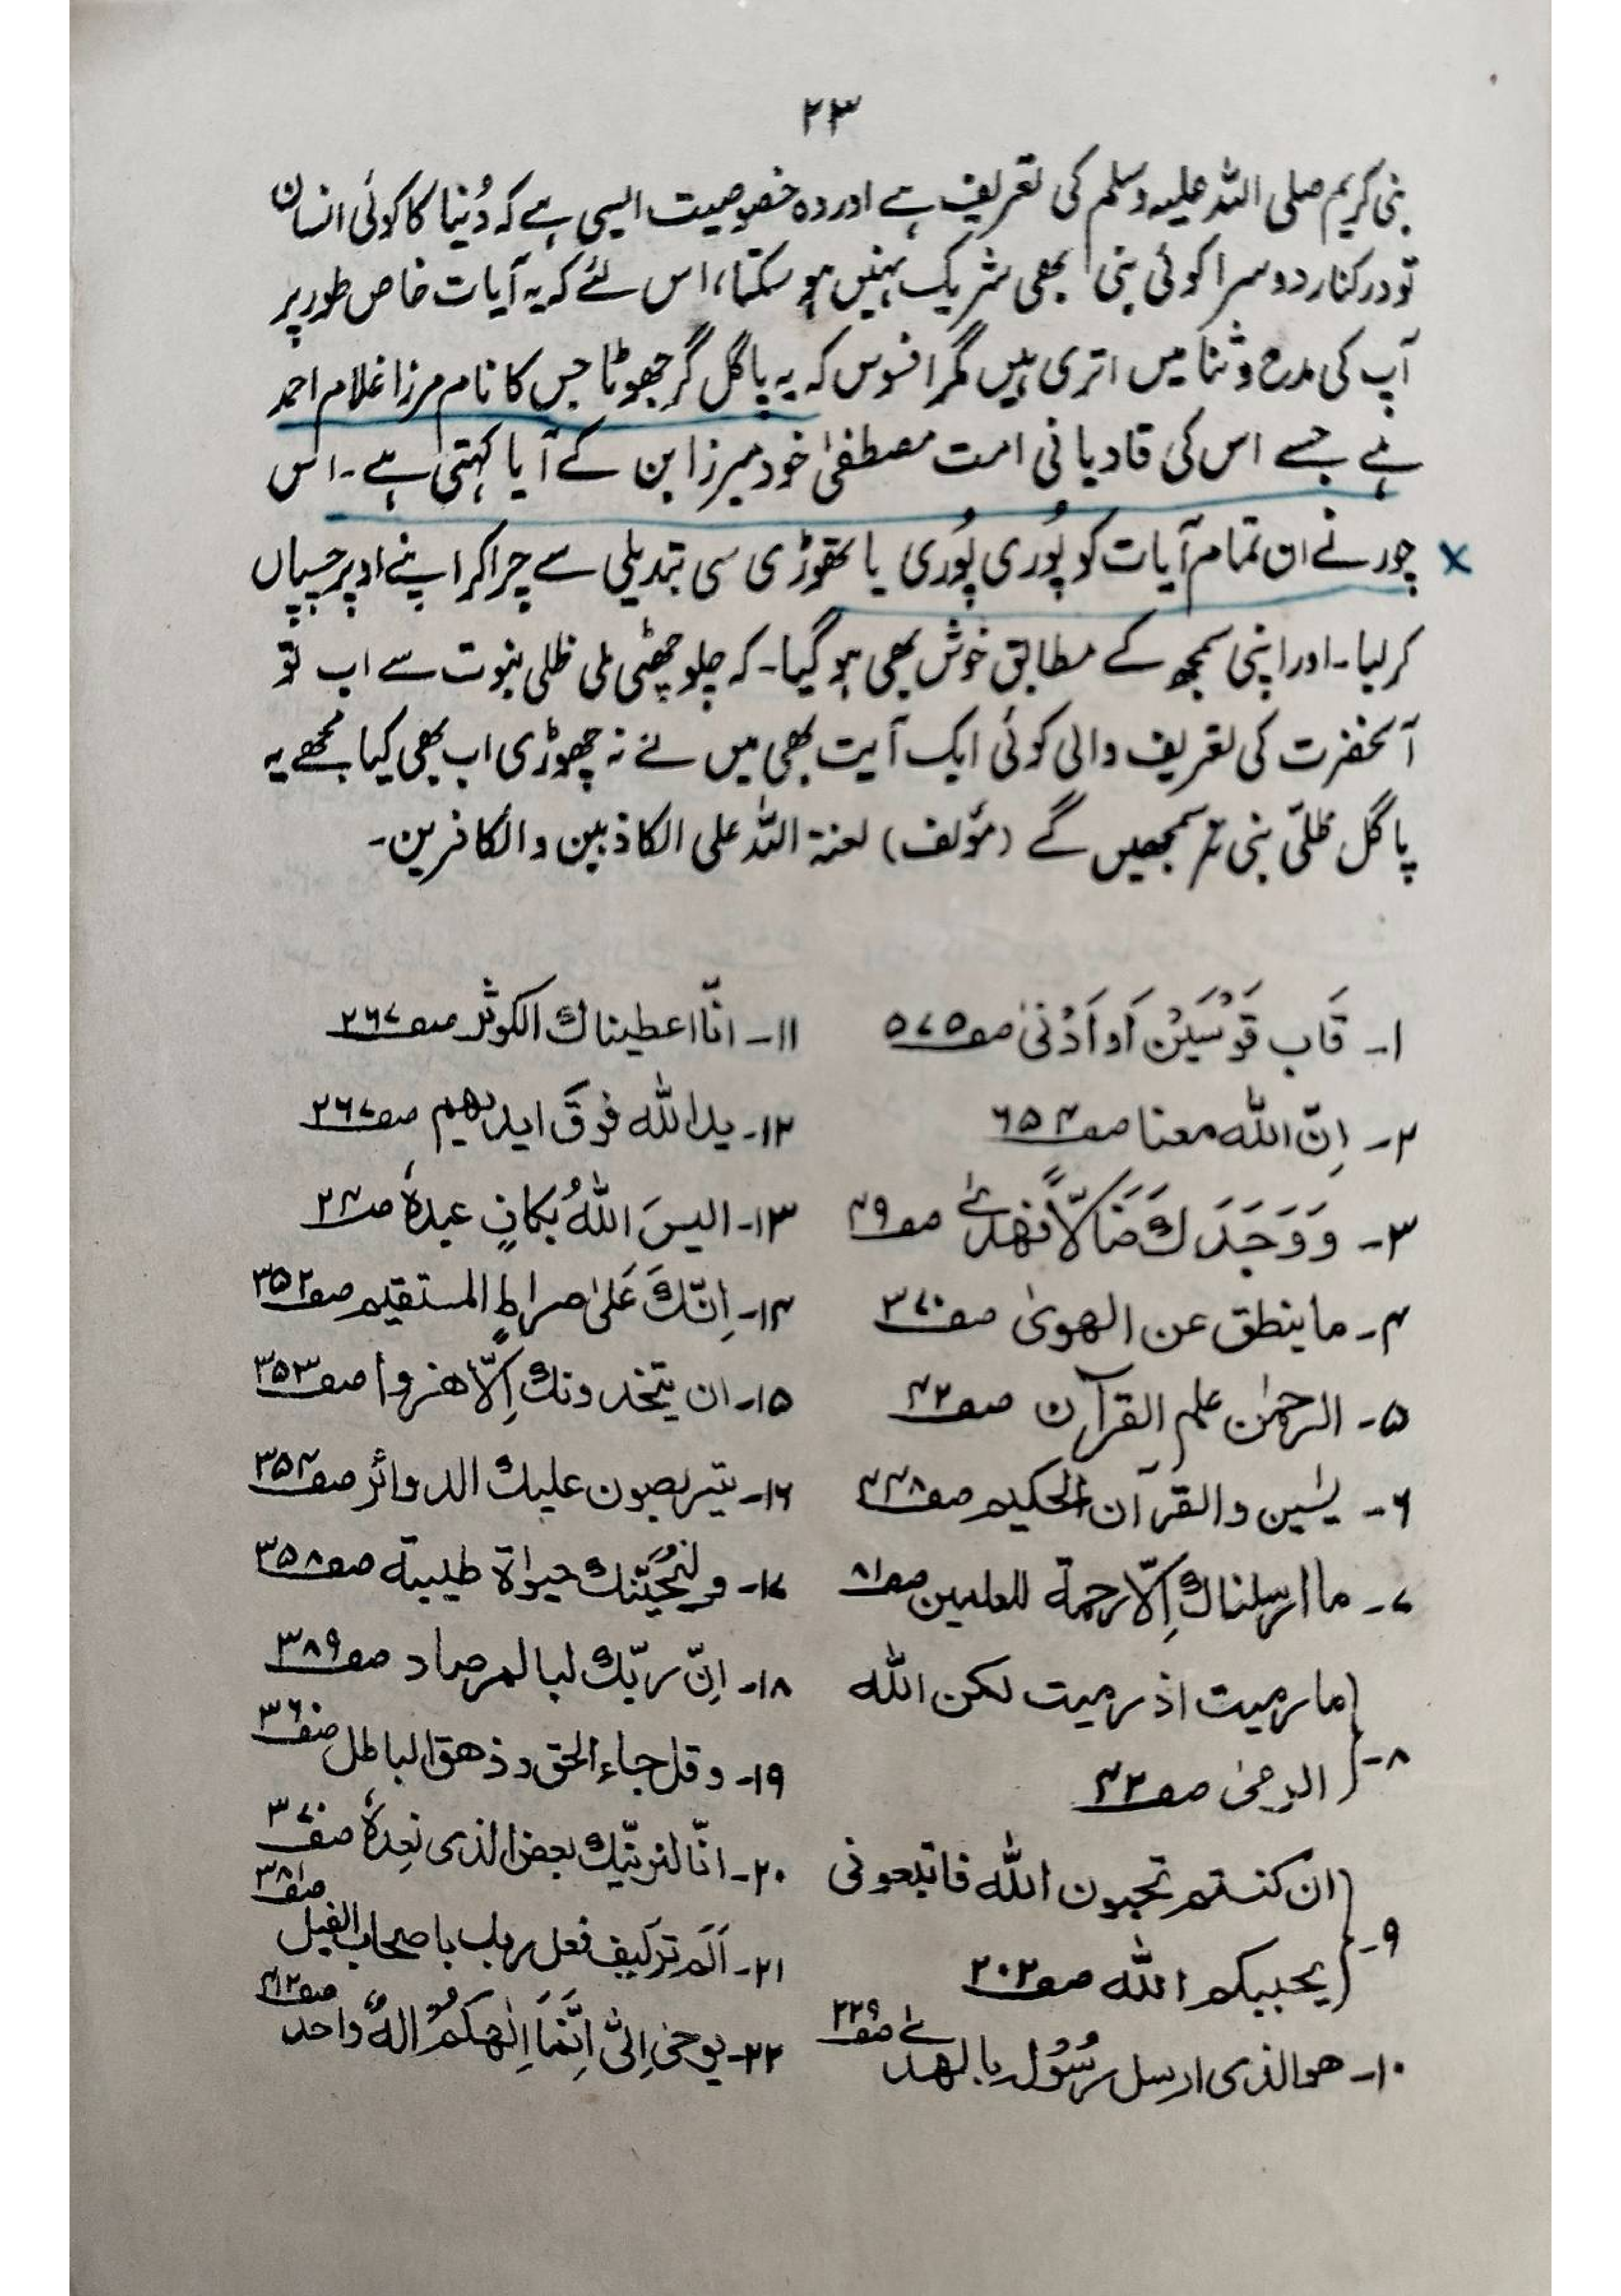 ۲۳
نبی کریم صلی اللہ علیہ وسلم کی تعریف ہے اور وہ خصوصیت ایسی ہے کہ دُنیا کا کوئی انسان
تو درکنار دوسرا کوئی نبی بھی شریک نہیں ہو سکتا، اس لئے کہ یہ آیات خاص طور پر
آپ کی مدح و ثنا میں اتری ہیں مگر افسوس کہ یہ پاگل گر جھوٹا جس کا نام مرزا غلام احمد
ہے جسے اس کی قادیانی امت مصطفیٰ خود میرزا بن کے آیا کہتی ہے۔ اس
چور نے ان تمام آیات کو پُوری پُوری یا تھوڑی سی تبدیلی سے چرا کر اپنے اوپر چسپاں
کر لیا۔ اور اپنی سمجھ کے مطابق خوش بھی ہو گیا۔ کہ چلو چھٹی ملی ظلی نبوت سے اب تو
آنحضرت کی تعریف والی کوئی ایک آیت بھی میں نے نہ چھوڑی اب بھی کیا مجھے یہ
پاگل ظلّی نبی نہ سمجھیں گے (مؤلف) لعنۃ اللہ علی الکاذبین والکافرین۔
۱۔ قَاب قَوْسَیْنِ اَو اَدْنیٰ صفہ ۵۷۵
۲۔ اِنّ اللّٰه معنا صفہ ۶۵۴
۳۔ وَوَجَدَكَ ضَالًّا فهدیٰ صفہ ۴۹
۴۔ ما ینطق عن الهویٰ صفہ ۳۷۰
۵۔ الرحمٰن علم القرآن صفہ ۴۲
۶۔ یٰسین والقرآن الحکیم صفہ ۴۴۸
۷۔ ما ارسلناك اِلّا رحمة للعلمین صفہ ۸۱
۸۔ ما رمیت اذ رمیت لکن اللّٰه
الرمیٰ صفہ ۴۲
۹۔ ان کنتم تحبون اللّٰه فاتبعونی
یحببکم اللّٰه صفہ ۲۰۲
۱۰۔ هو الذی ارسل رسُوُلہ بالهدیٰ صفہ ۲۲۹
۱۱۔ انّا اعطیناك الکوثر صفہ ۲۶۷
۱۲۔ ید اللّٰه فوقَ ایدیهم صفہ ۲۶۷
۱۳۔ الیسَ اللّٰهُ بکافٍ عبدهٗ صہ ۲۴
۱۴۔ اِنّكَ عَلیٰ صراطٍ المستقیم صفہ ۳۵۲
۱۵۔ ان یتخذونك اِلّا هزوا صفہ ۳۵۳
۱۶۔ یتربصون علیك الدوائر صفہ ۳۵۴
۱۷۔ ولنُحیَیّنك حیواة طیبة صفہ ۳۵۸
۱۸۔ اِنّ ربّك لبالمرصاد صفہ ۳۸۹
۱۹۔ وقل جاء الحق و ذهق الباطل صفہ ۳۶۰
۲۰۔ انّا لنرینّك بعض الذی نعِدهٗ صفہ ۳۷۰
۲۱۔ اَلَم ترکیف فعل رباب باصحاب الفیل صفہ ۳۸۱
۲۲۔ یوحیٰ اِلیّ اِنَّمَا اِلٰهکُمْ اِلهٌ واحد صفہ ۴۱۲